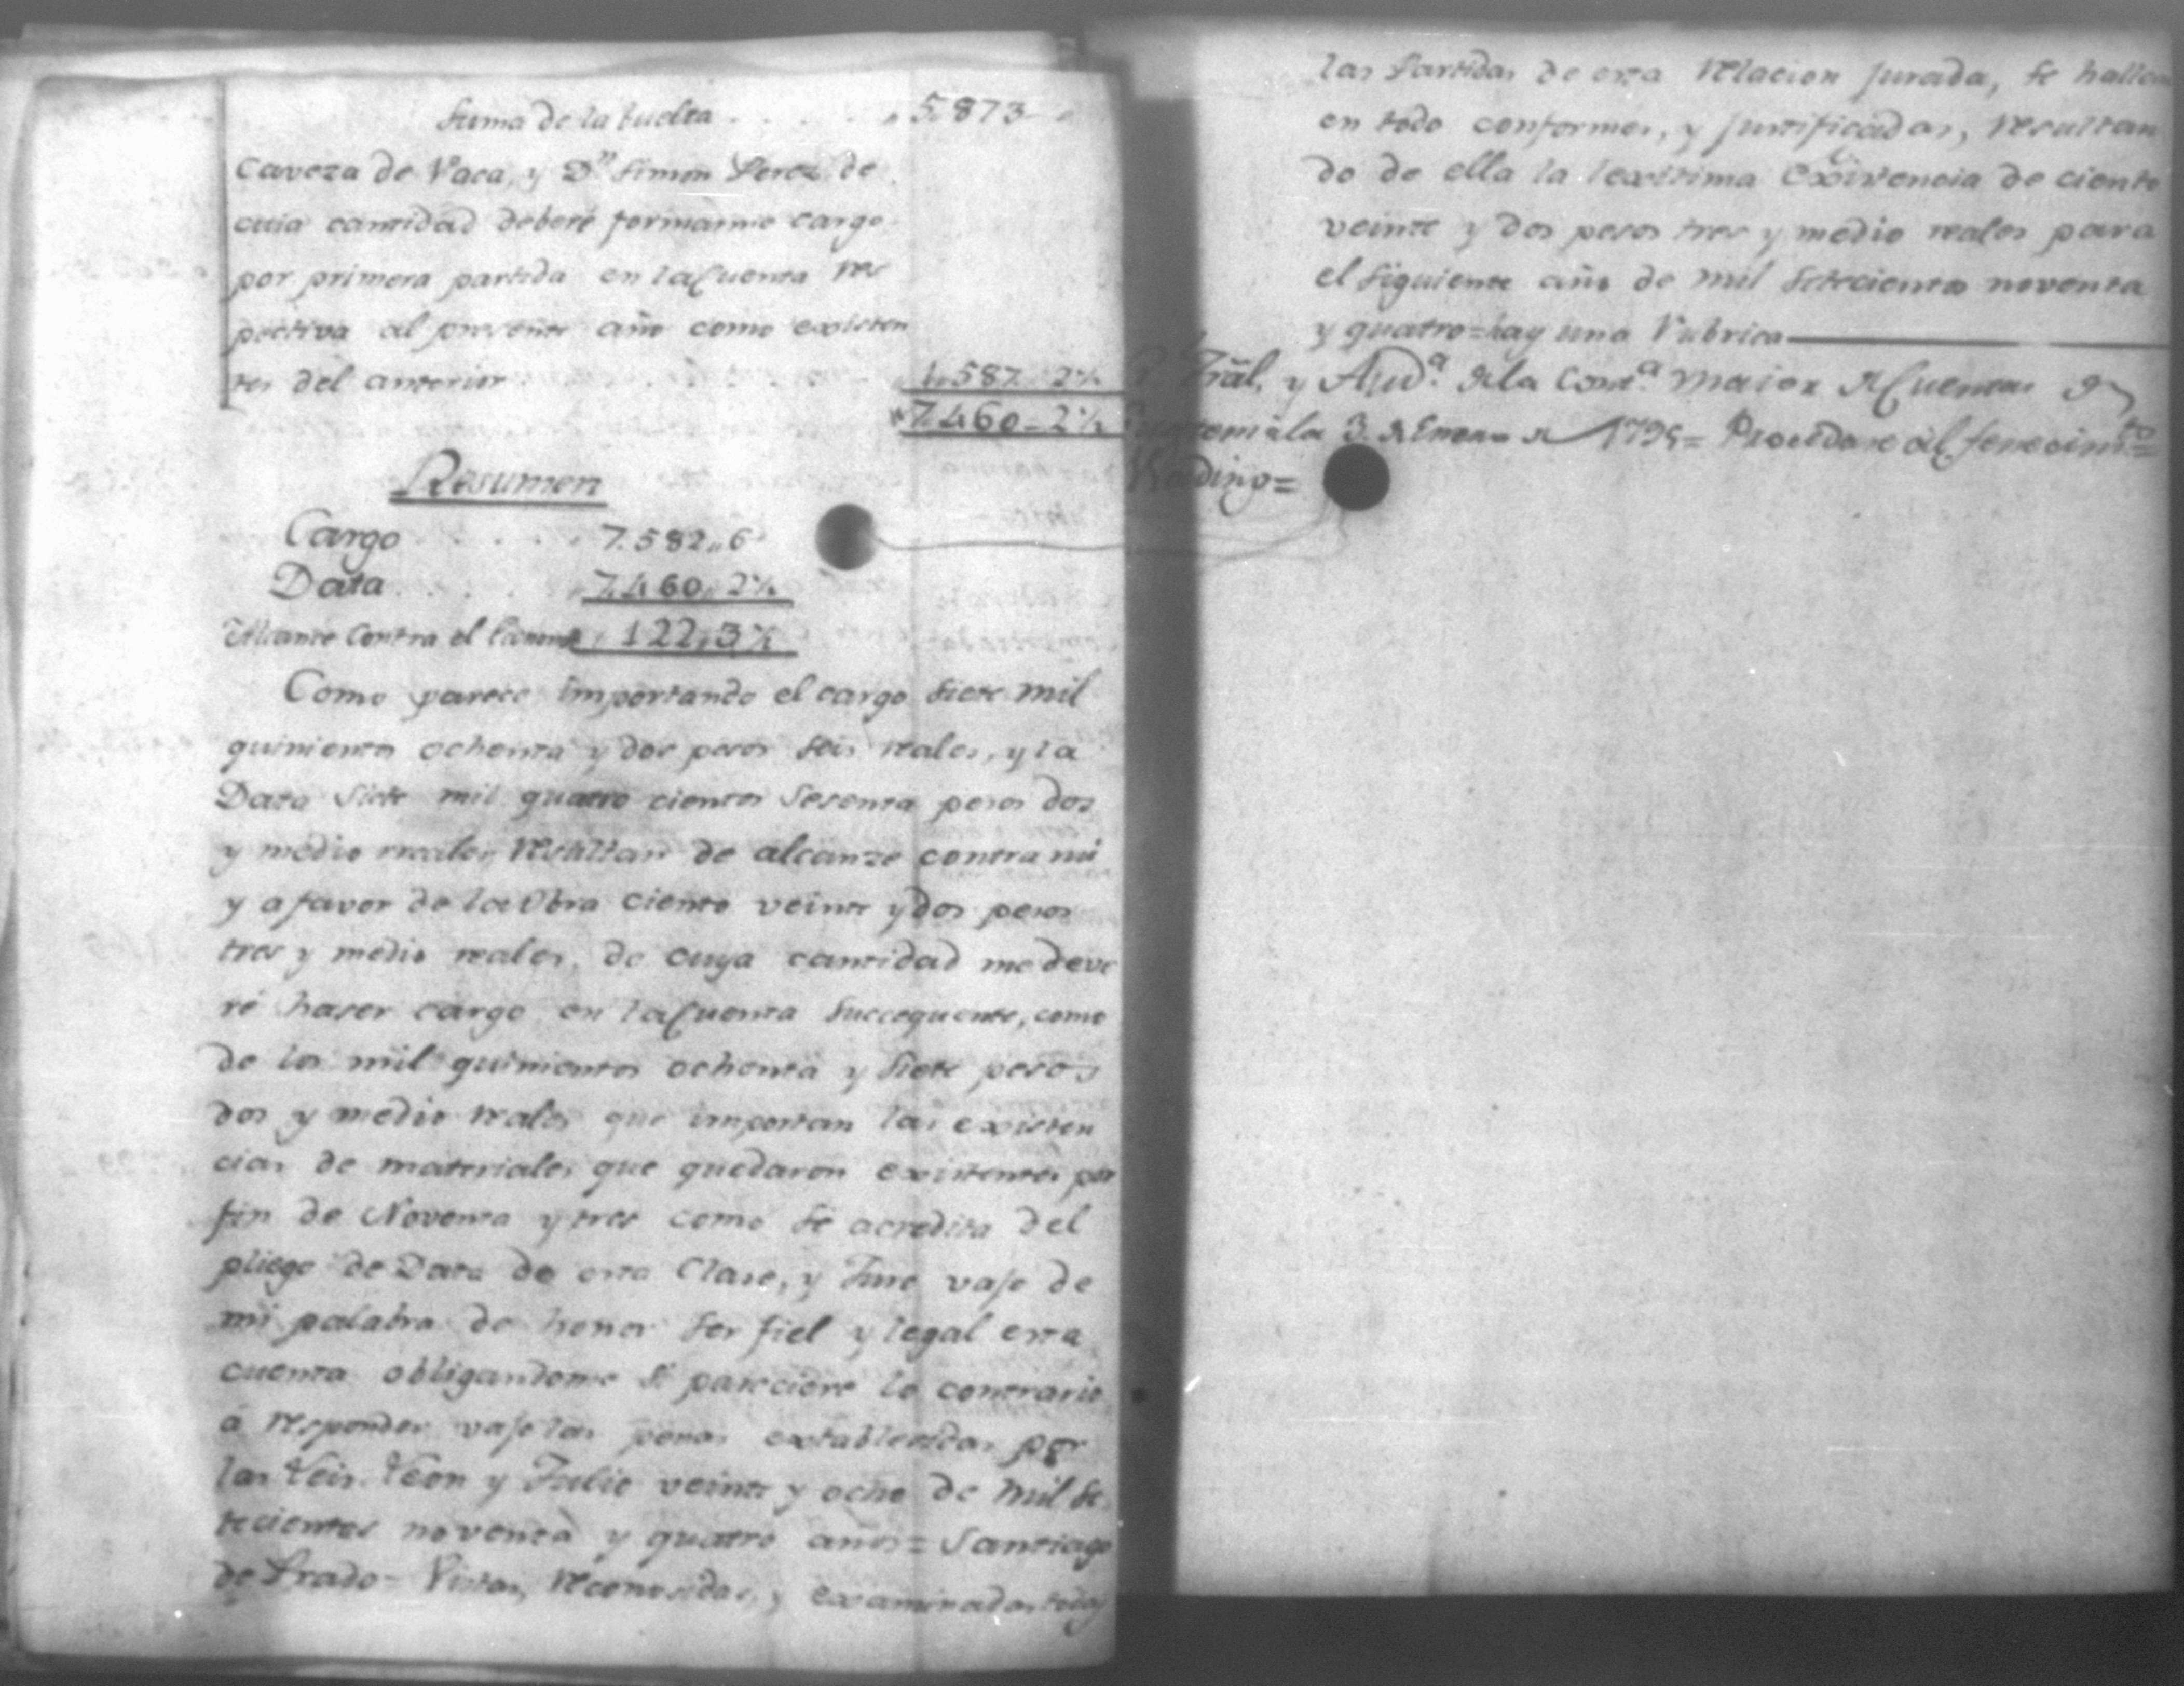 Suma de la buelta . . . . . . „ 5.873 „
Caveza de Vaca, y Dⁿ Simon Perez de
cuia cantidad deberé formarme cargo
por primera partida en la Cuenta res
pectiva al presente año como existen
tes del anterior 1.587. 2½
7.460 „ 2½
Resumen
Cargo . . . . . 7.582 „ 6
Data . . . . . 7.460 „ 2½
Alcance contra el 122 „ 3½
Como parece importando el cargo siete mil
quinientos ochenta y dos pesos seis reales, y la
Data siete mil quatro cientos sesenta pesos dos
y medio reales, resultan de alcanze contra mi
y a favor de la Obra ciento veinte y dos pesos
tres y medio reales, de cuya cantidad me deve
ré haser cargo en la Cuenta succequente, como
de los mil quinientos ochenta y siete pesos
dos y medio reales que importan las existen
cias de materiales que quedaron existentes por
fin de Noventa y tres como se acredita del
pliego de Data de esta Clase, y Juro vajo de
mi palabra de honor ser fiel y legal esta
cuenta obligandome si pareciere lo contrario
á responder vajo las penas establecidas por
las Leis. Leon y Julio veinte y ocho de mil se
tecientos noventa y quatro años = Santiago
de Prado = Vistas, reconosidas, y examinadas todas
las Partidas de esta relacion jurada, se hallan
en todo conformes, y justificadas, resultan
do de ella la lexitima existencia de ciento
veinte y dos pesos tres y medio reales para
el siguiente año de mil setecientos noventa
y quatro = hay una Rubrica
Tral. y Audª. de la Contª. maior de Cuentas de
Guatemala 3. de Enero de 1795 = Procedase al fenecimto =